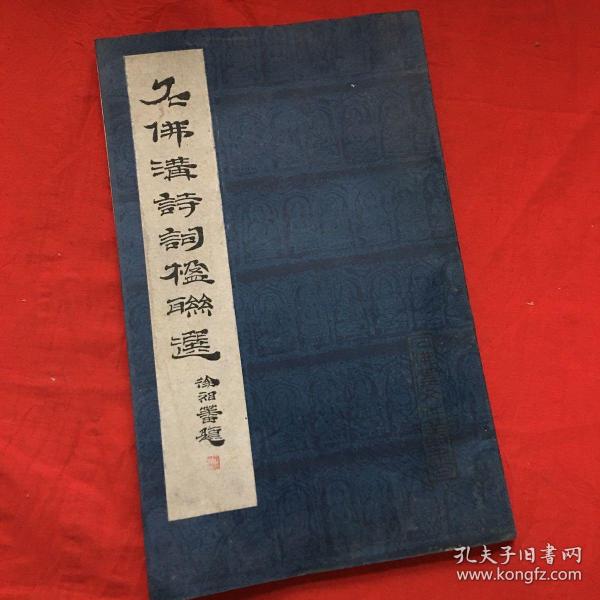 石佛溝詩詞楹聯選
徐祖蕃題
孔夫子旧書网
www.kongfz.com